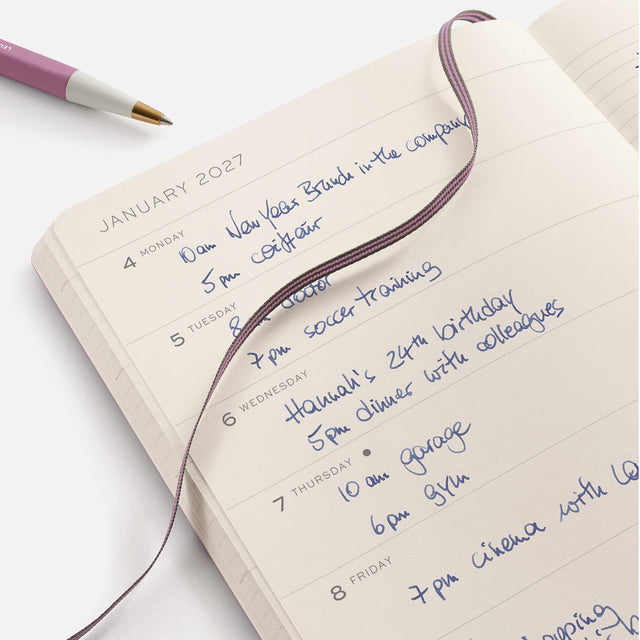 JANUARY 2027
4 MONDAY
10 am New Year Brunch in the company
5 pm coiffeur
5 TUESDAY
8 doctor
7 pm soccer training
6 WEDNESDAY
Hannah's 24th birthday
5 pm dinner with colleagues
7 THURSDAY
10 am garage
6 pm gym
8 FRIDAY
7 pm cinema with